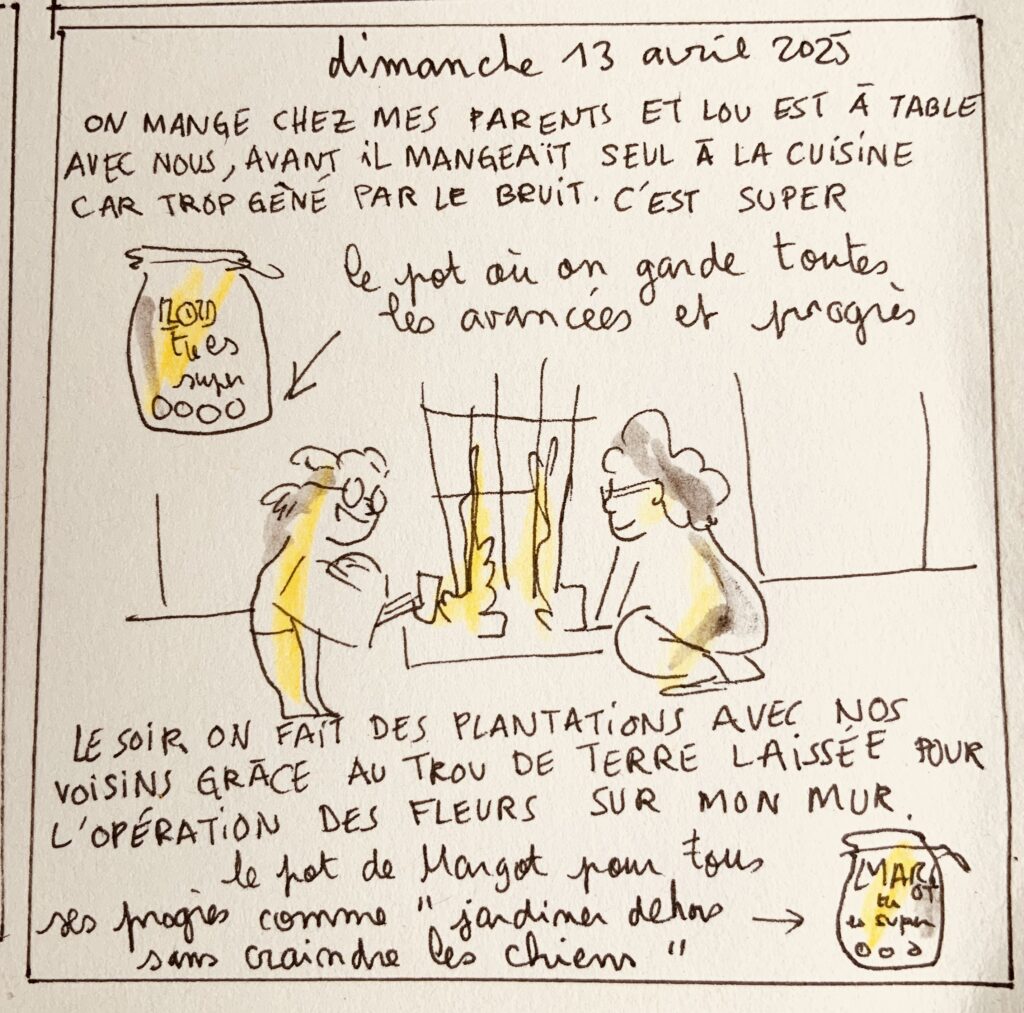 dimanche 13 avril 2025
ON MANGE CHEZ MES PARENTS ET LOU EST À TABLE
AVEC NOUS, AVANT IL MANGEAIT SEUL À LA CUISINE
CAR TROP GÊNÉ PAR LE BRUIT. C'EST SUPER
le pot où on garde toutes
les avancées et progrès
LOU
tu es
super
LE SOIR ON FAIT DES PLANTATIONS AVEC NOS
VOISINS GRÂCE AU TROU DE TERRE LAISSÉE POUR
L'OPÉRATION DES FLEURS SUR MON MUR.
le pot de Margot pour tous
ses progrès comme "jardiner dehors
sans craindre les chiens"
MARGOT
tu
es super